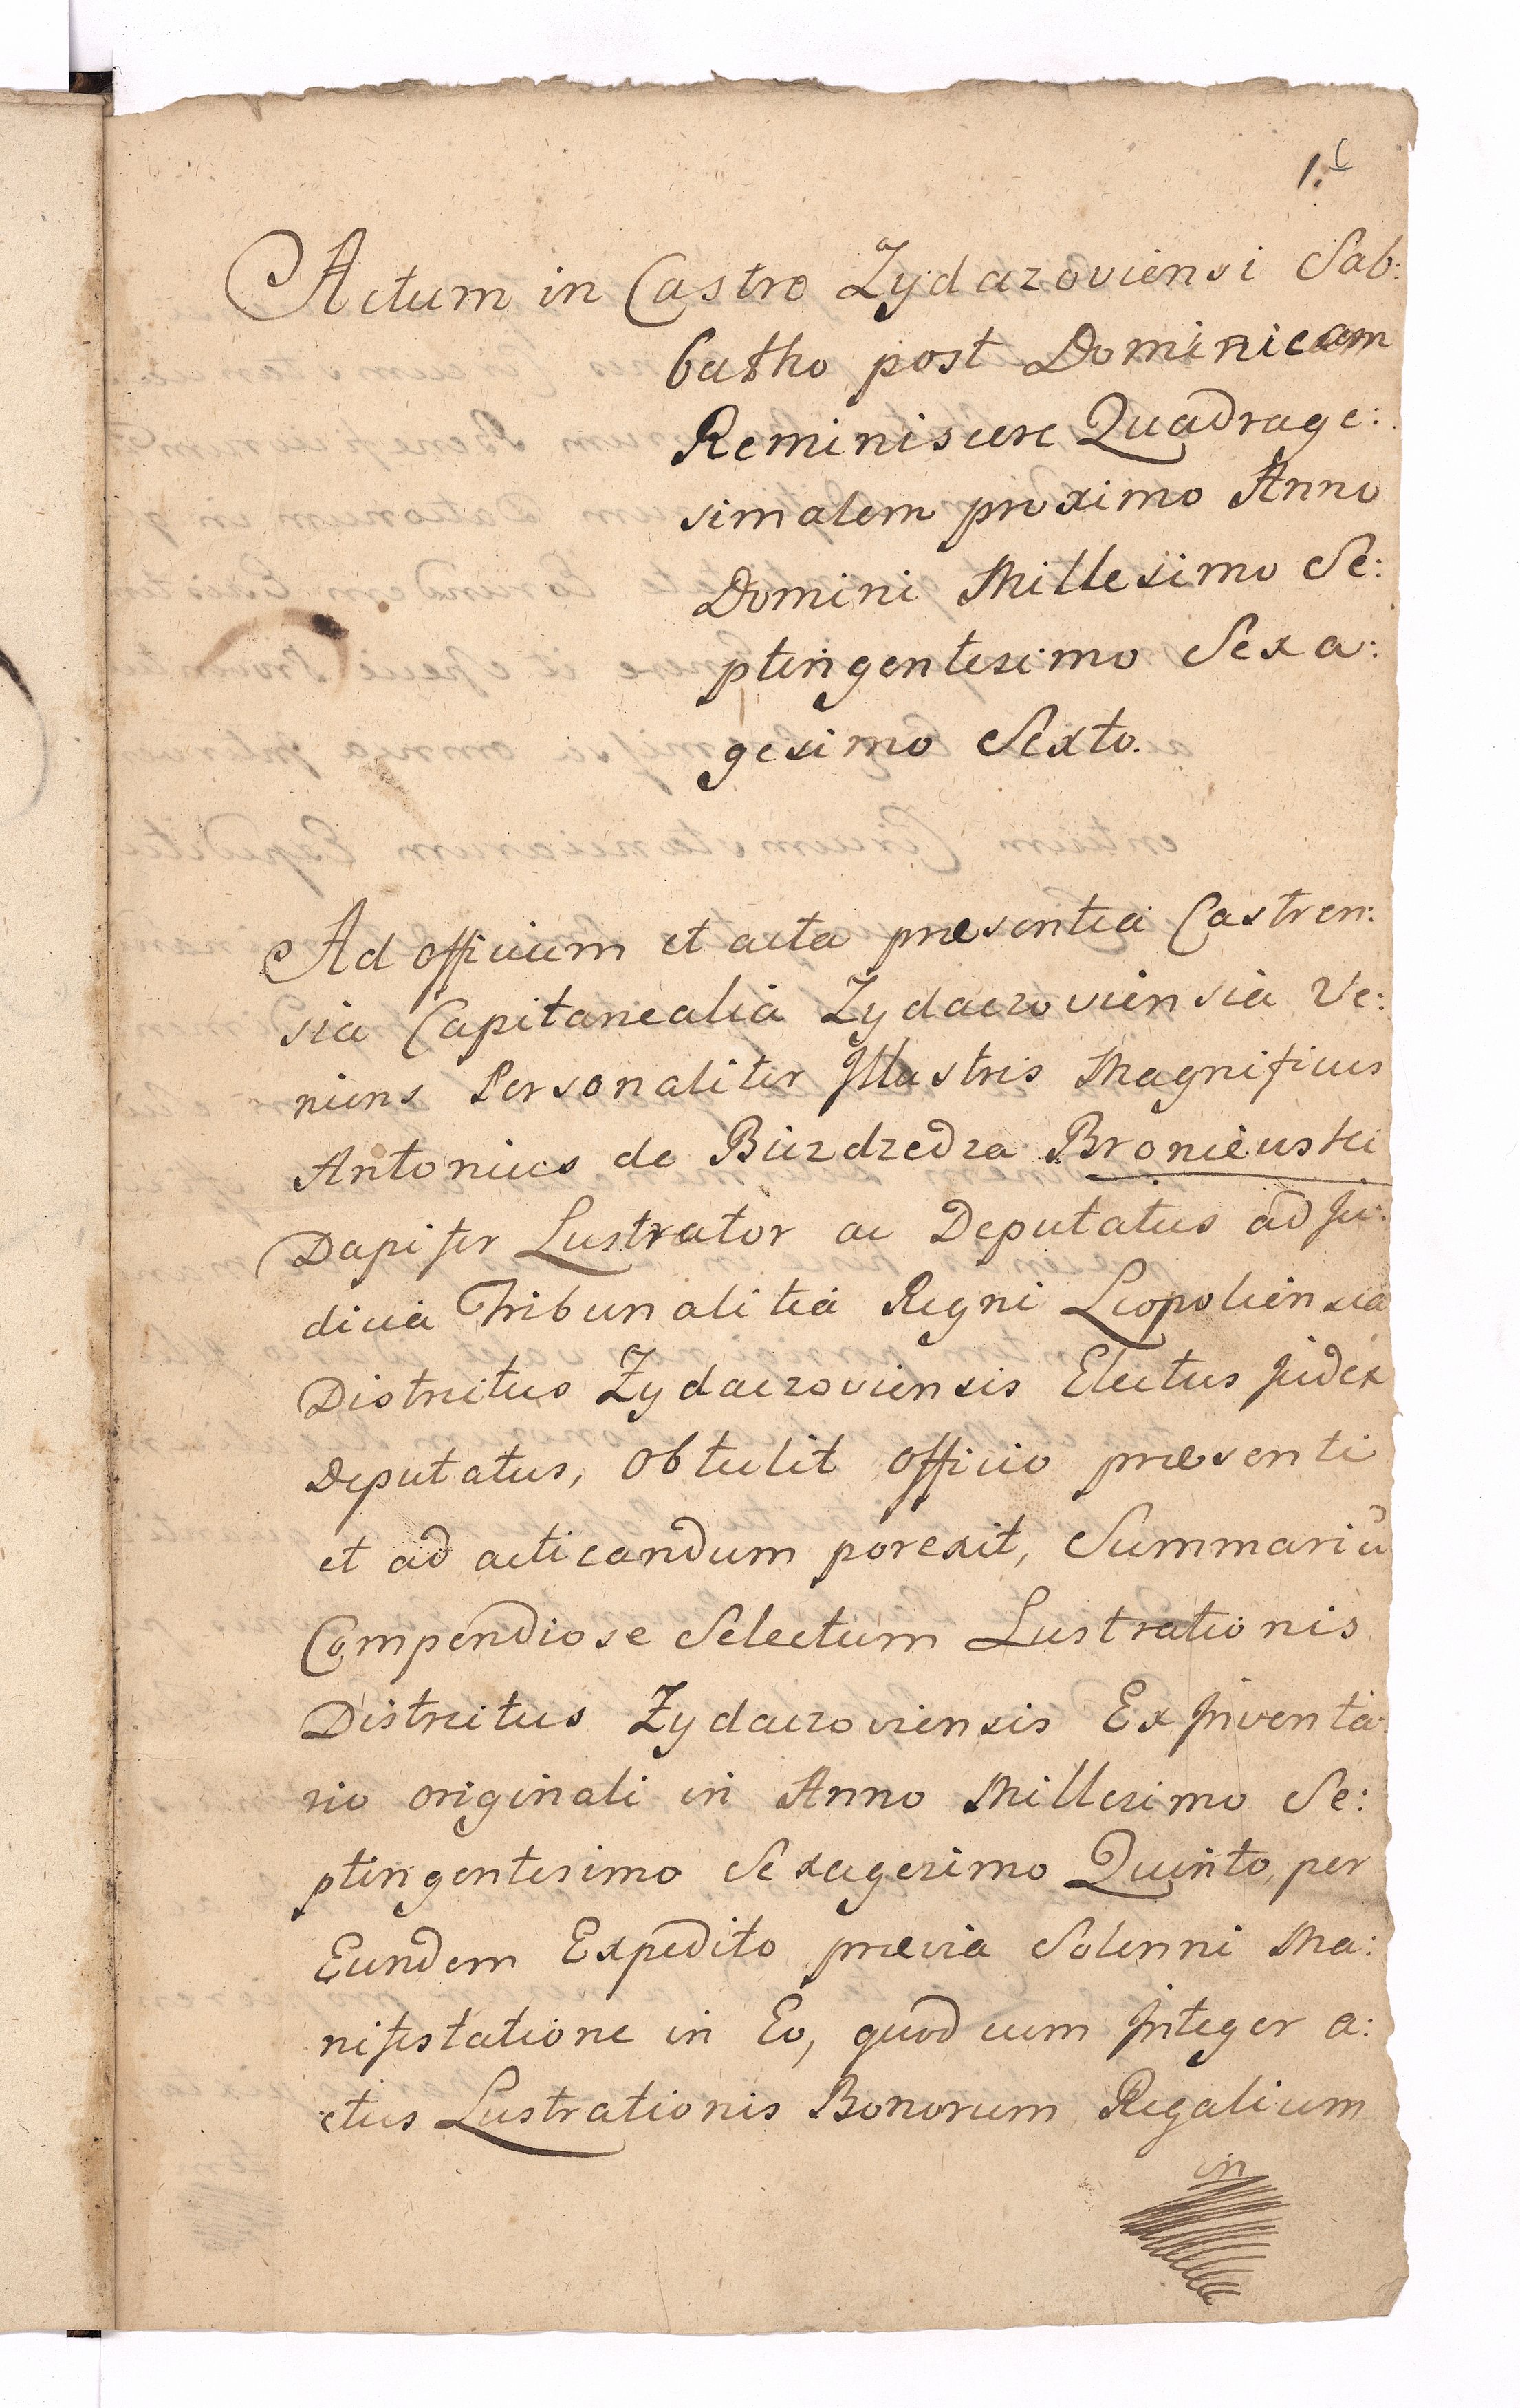 1.
Actum in Castro Zydazoviensi Sab:
batho post Dominicam
Reminiscere Quadrage:
simalem proximo Anno
Domini Millesimo Se:
ptingentesimo Sexa:
gesimo Sexto.
Ad officium et acta præsentia Castren:
sia Capitanealia Zydaczoviensia Ve:
niens Personaliter Illustris Magnificus
Antonius de Biezdzedza Broniewski
Dapifer Lustrator ac Deputatus ad Ju:
dicia Tribunalitia Regni Leopoliensia
Districtus Zydaczoviensis Electus Judex
Deputatus, obtulit officio præsenti
et ad acticandum porexit, Summariũ
Compendiose Selectum Lustrationis
Districtus Zydaczoviensis Ex Inventa
rio originali in Anno Millesimo Se:
ptingentesimo Sexagesimo Quinto, per
Eundem Expedito prævia Solenni Ma:
nifestatione in Eo, quod cum Integer a:
ctus Lustrationis Bonorum Regalium
in